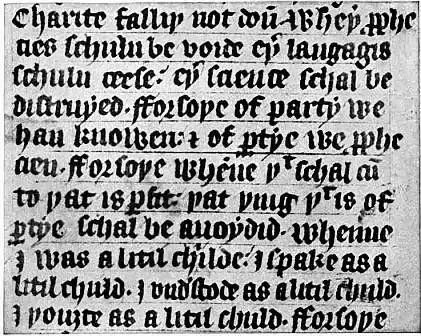 Charite falliþ not doū. Wheþ̄ ꝓphe
cies schulū be voide eþ̄ langagis
schulū ceese: eþ̄ science schal be
distruyed. fforsoþe of party we
han knowen: ⁊ of ꝑtye we ꝓphe
cien. fforsoþe whēne þᵗ schal cū
to þat is ꝑfit: þat þing þᵗ is of
ꝑtye schal be auoydid. whenne
I was a litil childe. I spake as a
litil chuld. I vndˢtode as a litil chuld.
I þouȝte as a litil chuld. fforsoþe